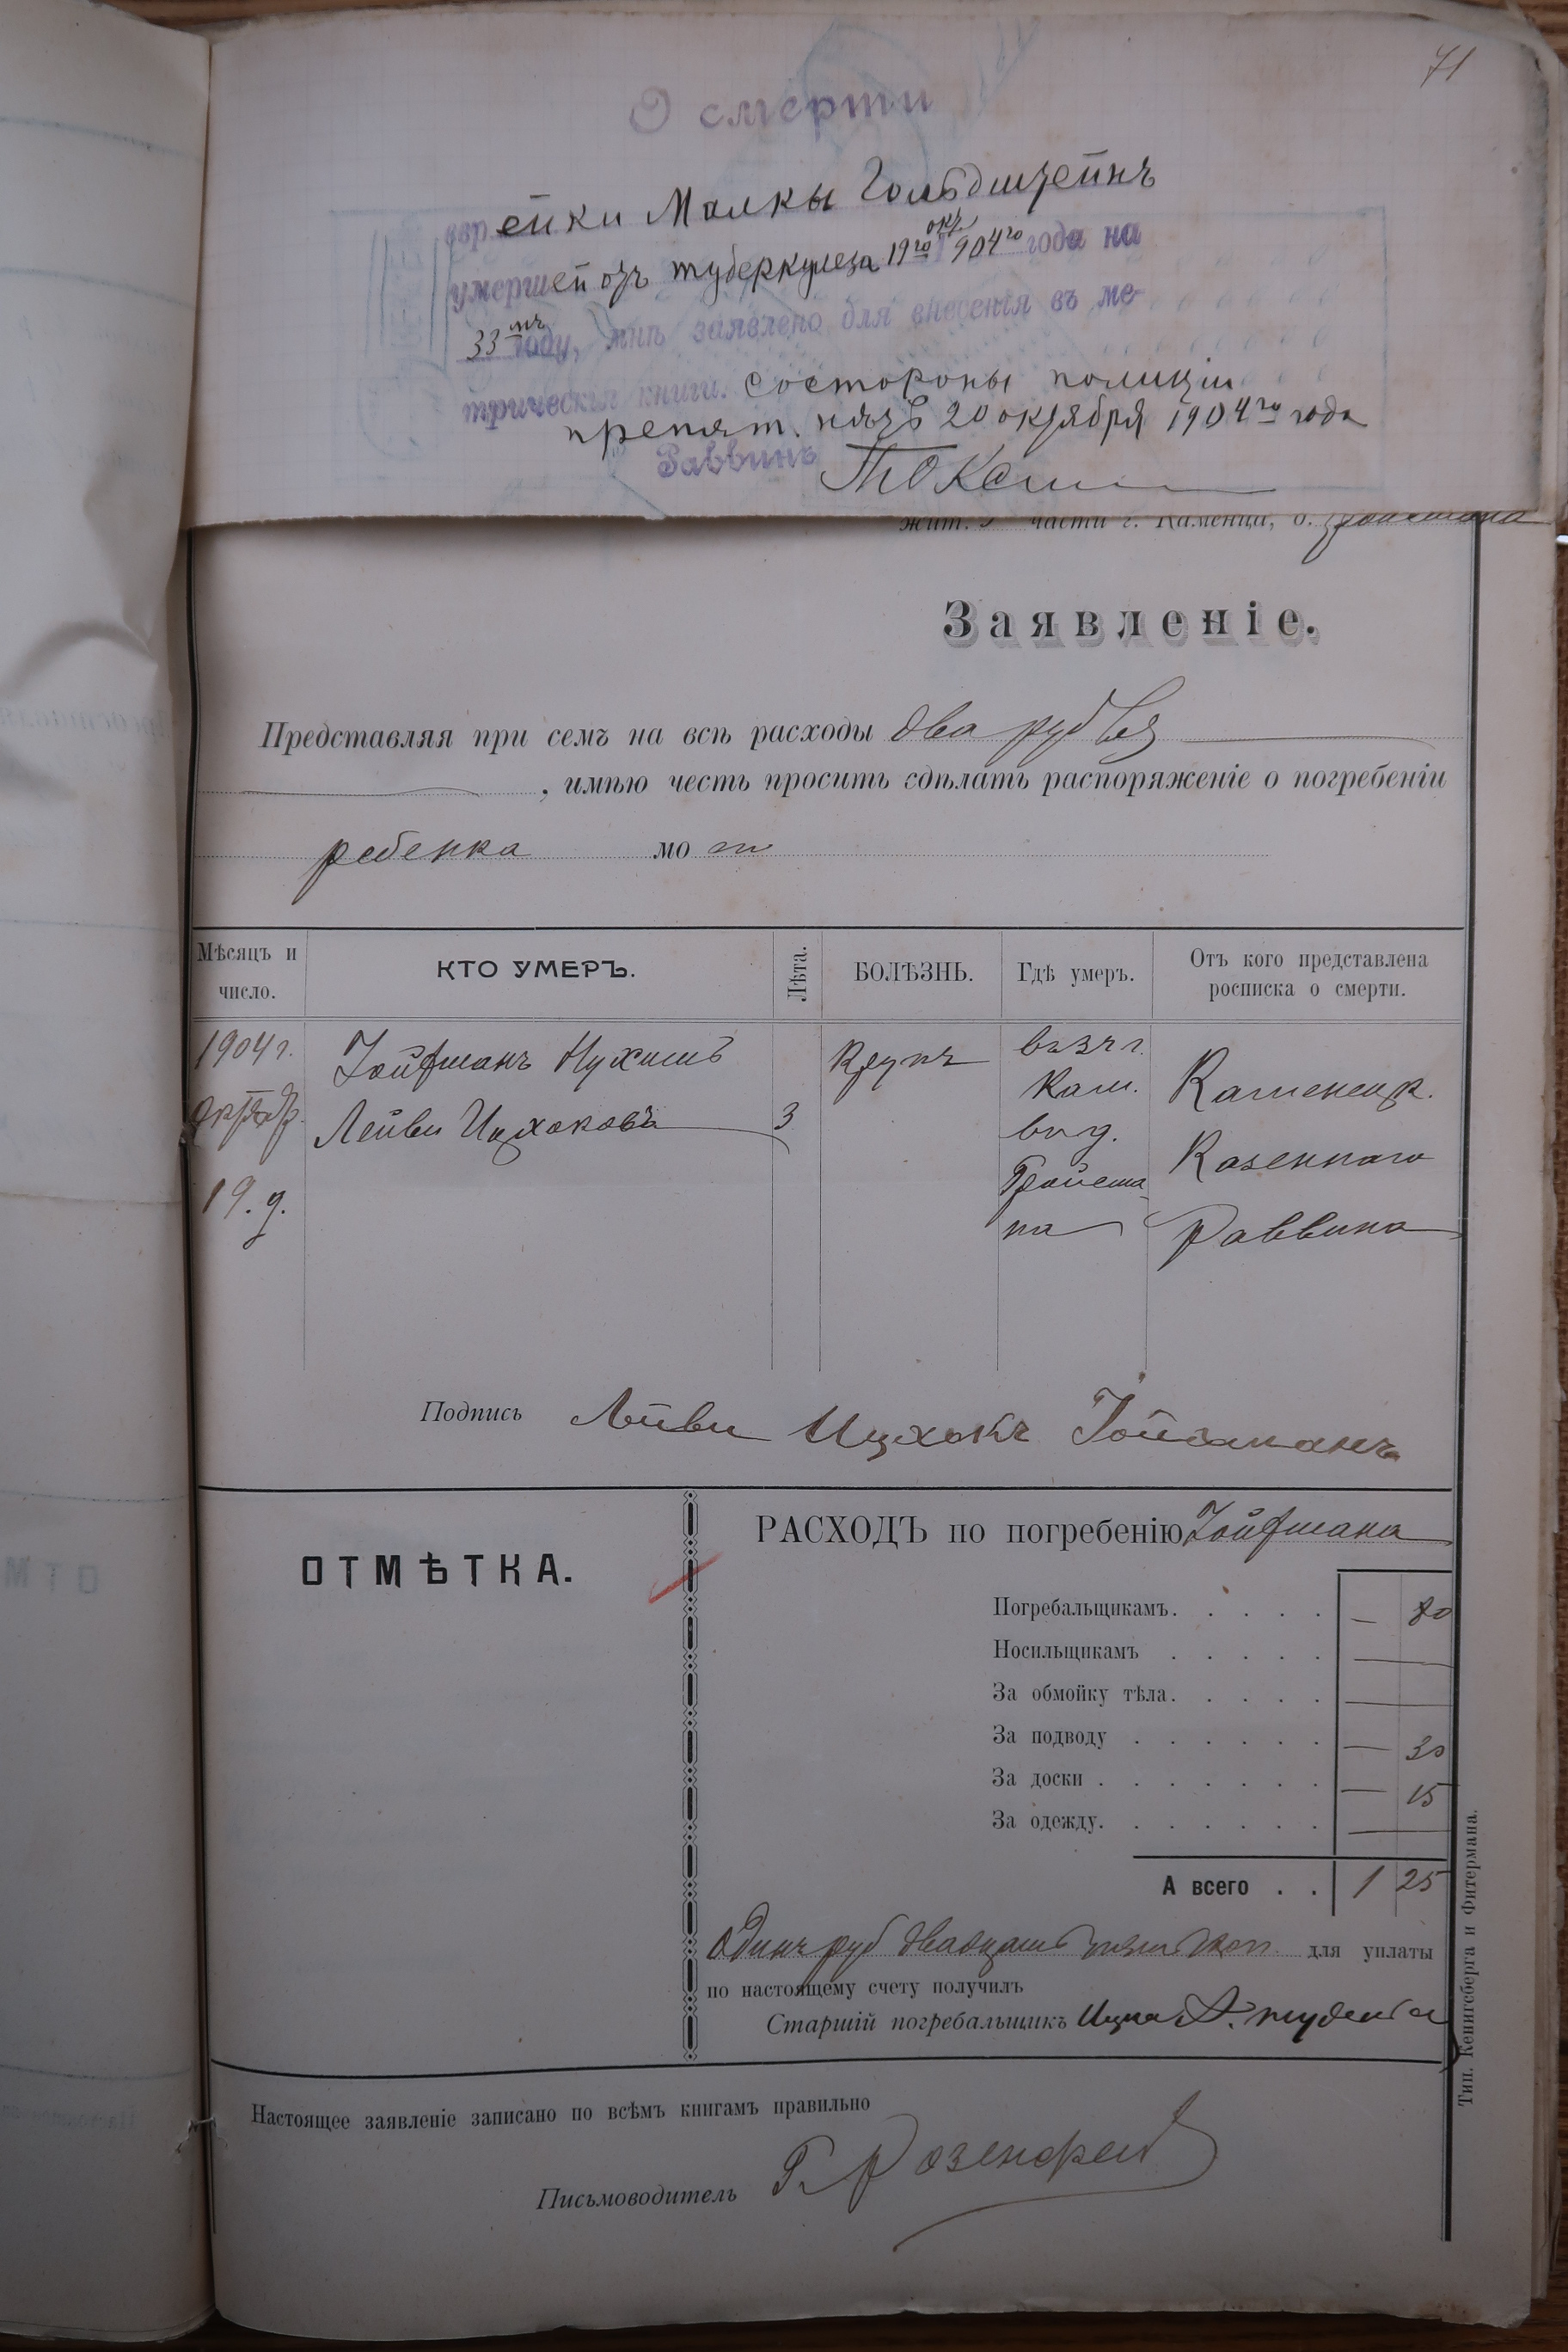 71
О смерти
еврейки Малки Гольдштейнъ
умершей отъ туберкулеза 19го окт. 904го года на
33мъ году, мнѣ заявлено для внесенія въ ме-
трическія книги. состороны полиціи
препят. нѣтъ 20 октября 1904го года
Раввинъ
жит. части г. Каменца, д.
Заявленіе.
Представляя при семъ на всѣ расходы два рубля
, имѣю честь просить сдѣлать распоряженіе о погребеніи
ребенка мо
Мѣсяцъ и число.
КТО УМЕРЪ.
Лѣта.
БОЛѢЗНЬ.
Гдѣ умеръ.
Отъ кого представлена росписка о смерти.
1904 г.
Зойфманъ Нухимъ
Крупъ
Кам.
Каменецк.
Октябр.
Лейви Ицхоковъ
3
в г д.
Казеннаго
19. д.
Гройсма-
на
Раввина
Подпись Лейви Ицхокъ Зойфманъ
ОТМѢТКА.
РАСХОДЪ по погребенію Зойфмана
Погребальщикамъ. — 80
Носильщикамъ
За обмойку тѣла.
За подводу — 30
За доски — 15
За одежду.
А всего 1 25
Одинъ руб двадцать пять коп. для уплаты
по настоящему счету получилъ
Старшій погребальщикъ
Настоящее заявленіе записано по всѣмъ книгамъ правильно
Письмоводитель Г. Розенфельд
Тип. Кенигсберга и Фитермана.